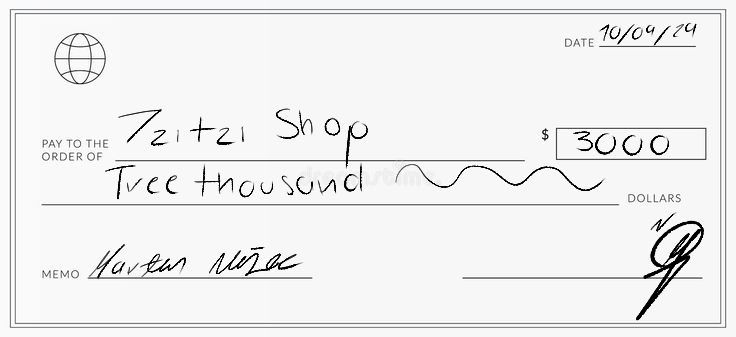 DATE 10/09/24
PAY TO THE
ORDER OF Tzitzi Shop $ 3000
Tree thousand DOLLARS
dreamstime.
MEMO